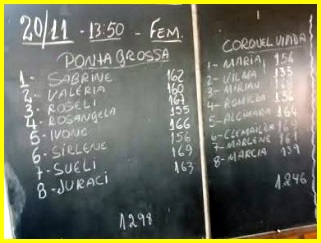 20/11 - 13:50 - FEM.
PONTA GROSSA
1- SABRINE 162
2- VALÉRIA 160
3- ROSELI 167
4- ROSANGELA 155
5- IVONE 166
6- SIRLENE 156
7- SUELI 169
8- JURACI 163
1298
CORONEL VIVIDA
1- MARIA 156
2- VILMA 135
3- MIRIAM
4- ROMILDA 156
5-
6-
7- MARLENE 161
8- MARCIA 139
1246